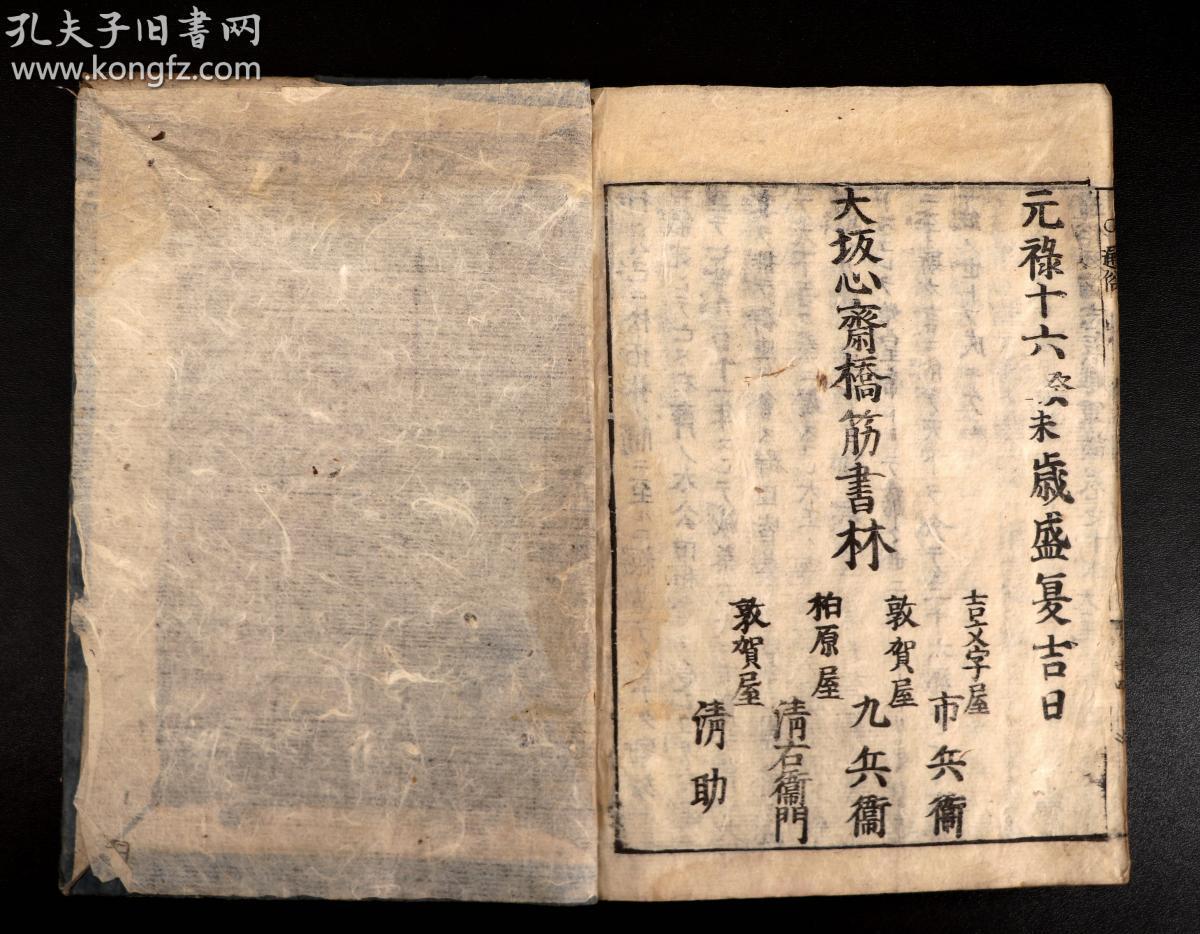 孔夫子旧书网
www.kongfz.com
通俗
元禄十六癸未歳盛夏吉日
大坂心齋橋筋書林
吉文字屋
市兵衞
敦賀屋
九兵衞
柏原屋
清右衞門
敦賀屋
清助